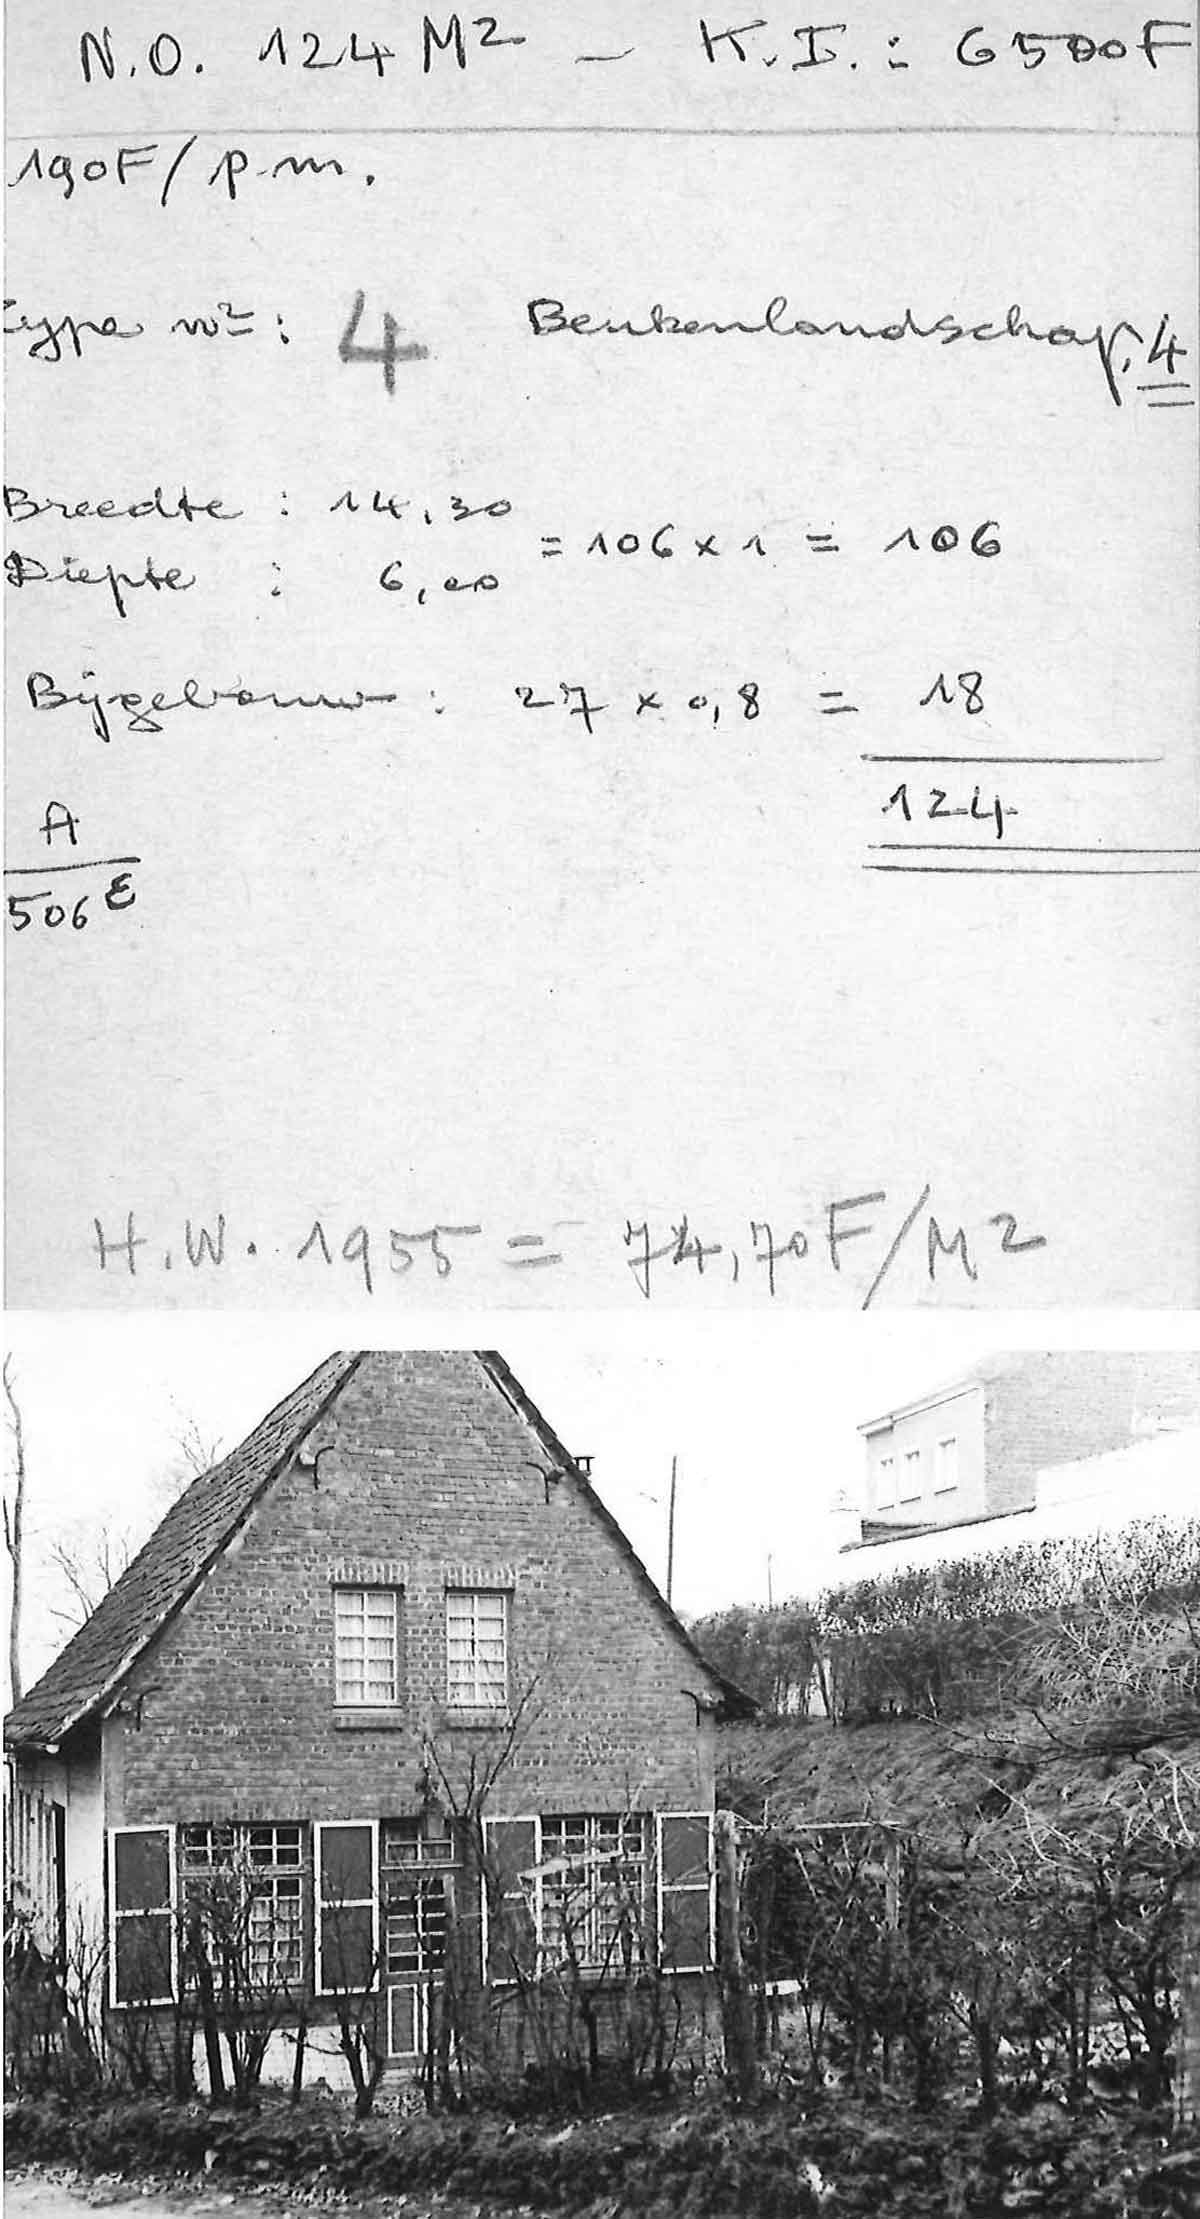 N.O. 124 M² - K.I. : 6500F
190F/p.m.
Type n°: 4 Beukenlandschap, 4
Breedte : 14,30
= 106 x 1 = 106
Diepte : 6,00
Bijgebouw : 27 x 0,8 = 18
124
A
506 E
H.W. 1955 = 74,70F/M2